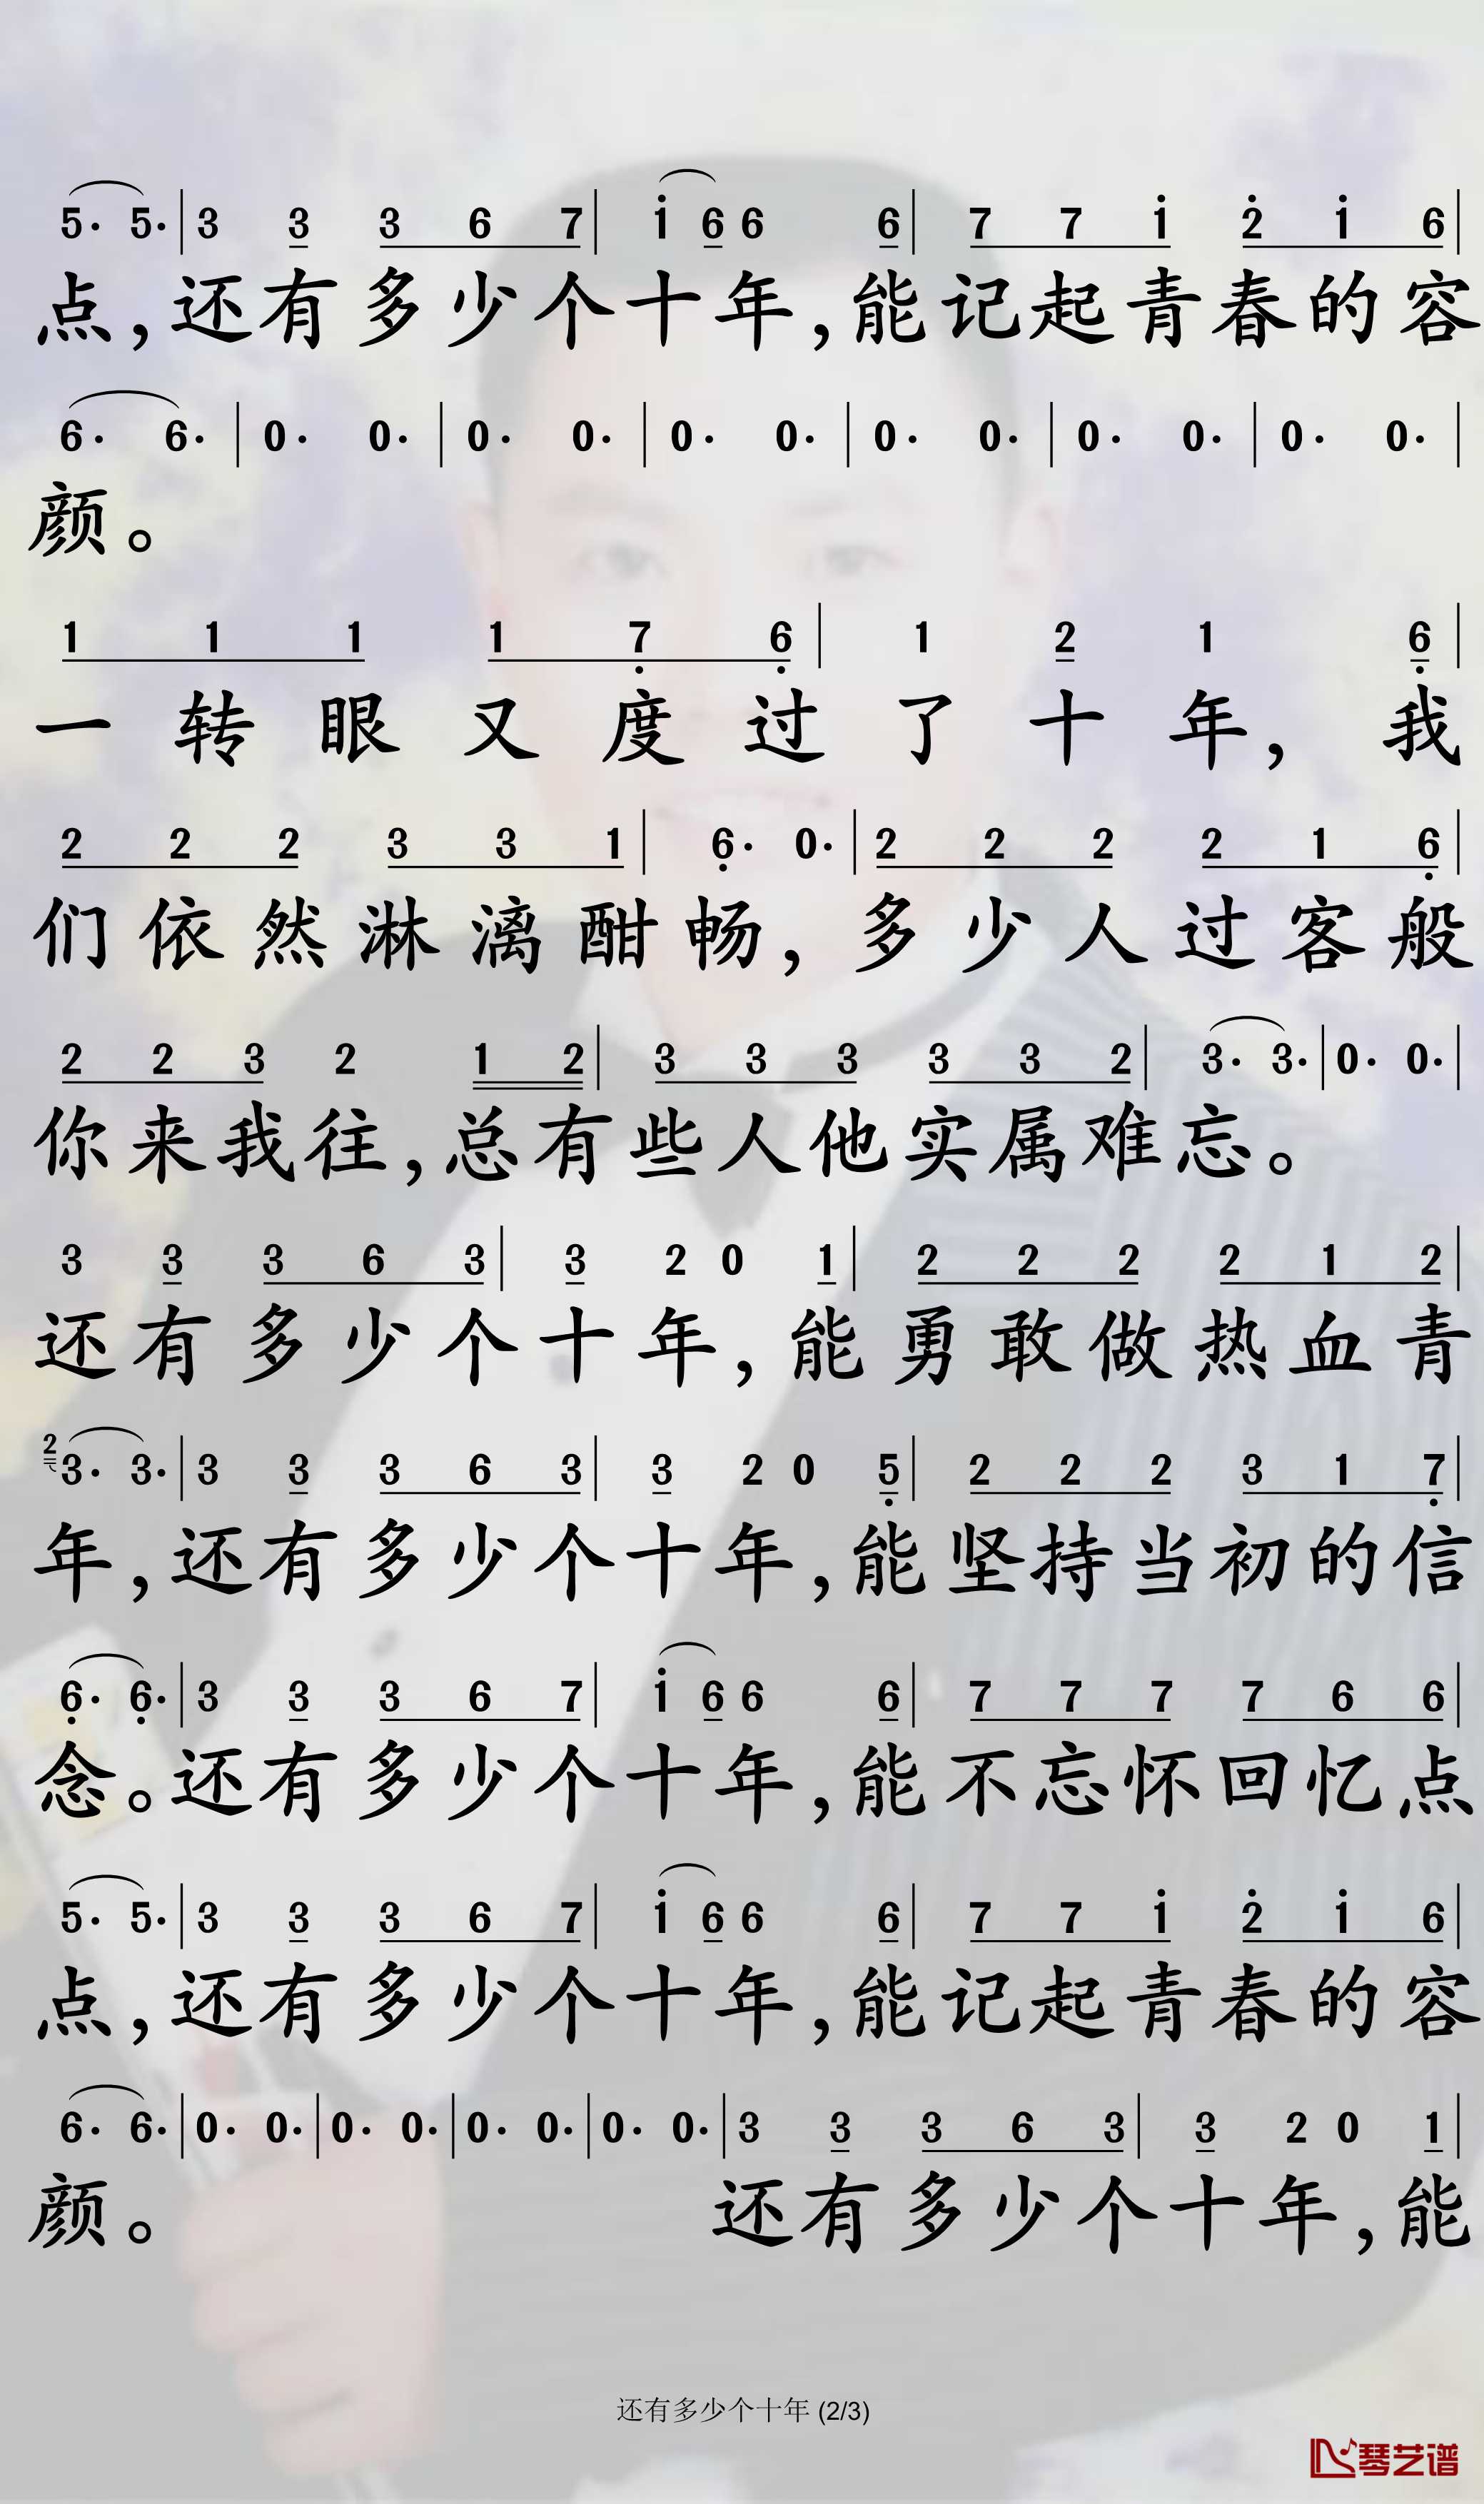 5· 5· | 3 3 3 6 7 | i 6 6 6 | 7 7 i 2 i 6 |
点,还有多少个十年,能记起青春的容
6· 6· | 0· 0· | 0· 0· | 0· 0· | 0· 0· | 0· 0· | 0· 0· |
颜。
1 1 1 1 7 6 | 1 2 1 6 |
一转眼又度过了十年,我
2 2 2 3 3 1 | 6· 0· | 2 2 2 2 1 6 |
们依然淋漓酣畅,多少人过客般
2 2 3 2 1 2 | 3 3 3 3 3 2 | 3· 3· | 0· 0· |
你来我往,总有些人他实属难忘。
3 3 3 6 3 | 3 2 0 1 | 2 2 2 2 1 2 |
还有多少个十年,能勇敢做热血青
2 3· 3· | 3 3 3 6 3 | 3 2 0 5 | 2 2 2 3 1 7 |
年,还有多少个十年,能坚持当初的信
6· 6· | 3 3 3 6 7 | i 6 6 6 | 7 7 7 7 6 6 |
念。还有多少个十年,能不忘怀回忆点
5· 5· | 3 3 3 6 7 | i 6 6 6 | 7 7 i 2 i 6 |
点,还有多少个十年,能记起青春的容
6· 6· | 0· 0· | 0· 0· | 0· 0· | 0· 0· | 3 3 3 6 3 | 3 2 0 1 |
颜。 还有多少个十年,能
还有多少个十年 (2/3)
琴艺谱